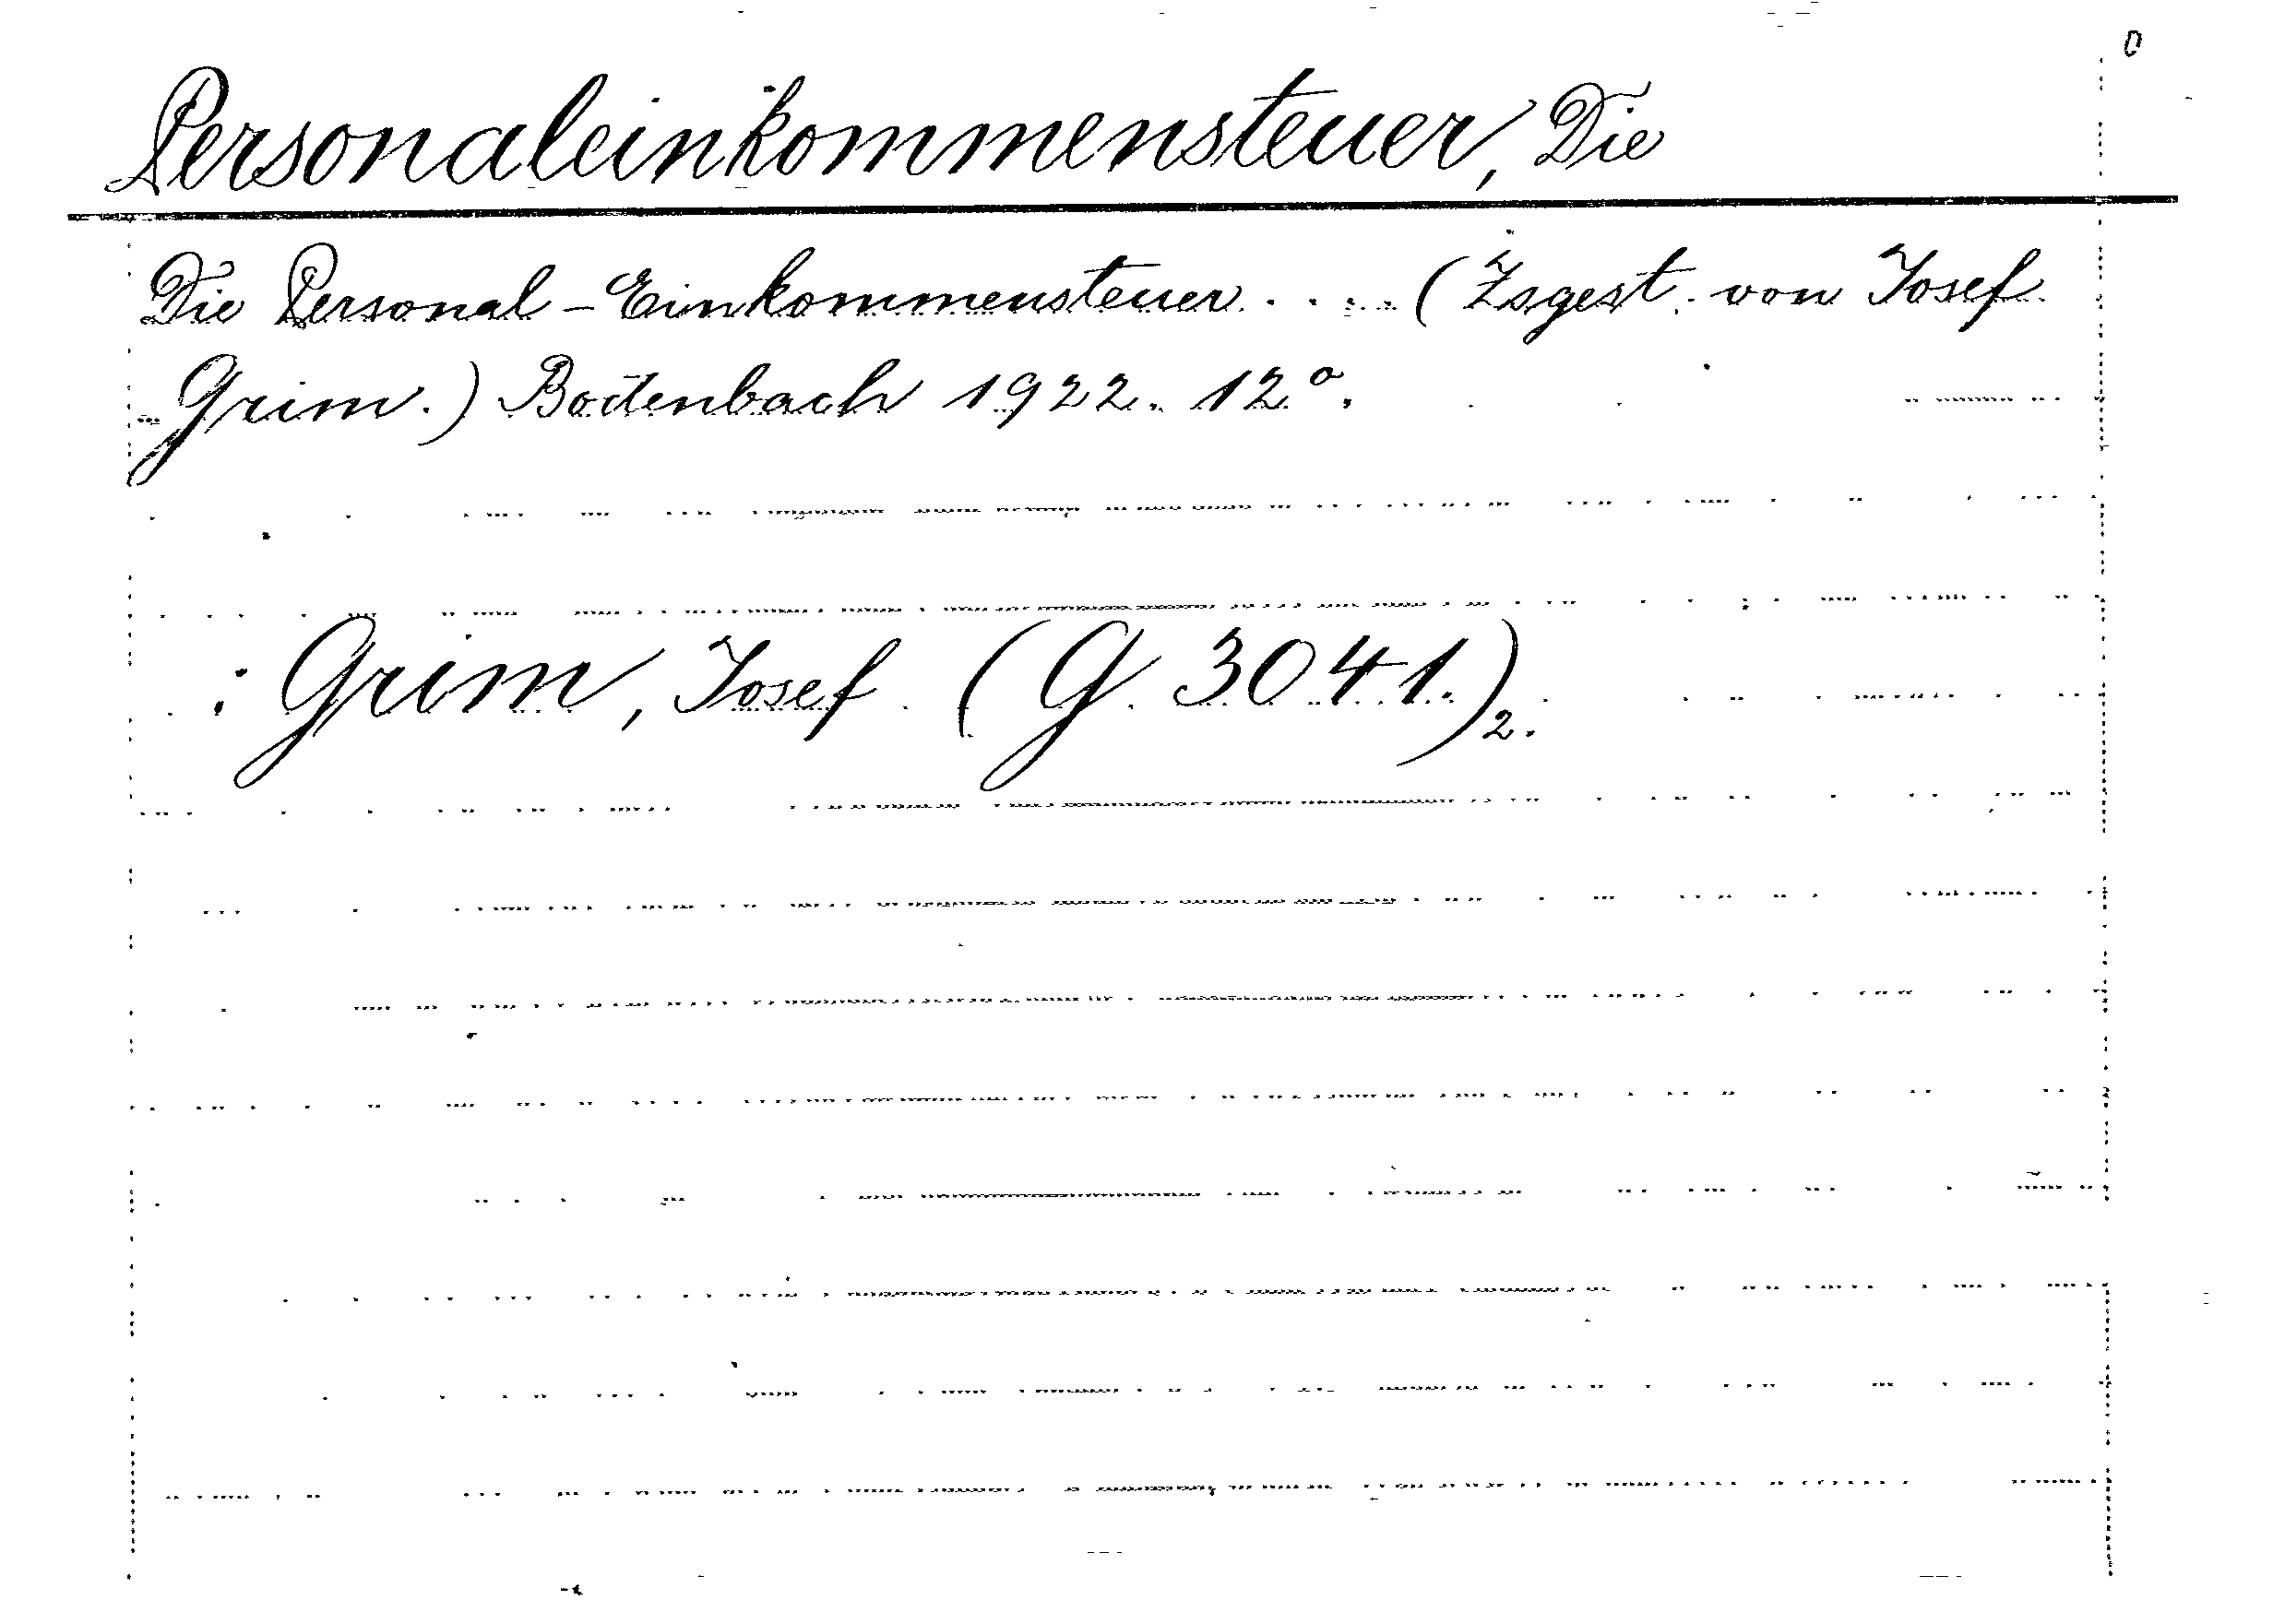 0
Personaleinkommensteuer, Die
Die Personal-Einkommensteuer..... (Zsgest. von Josef
Grim.) Bodenbach 1922. 12°.
: Grim, Josef. (G. 3041.)2.